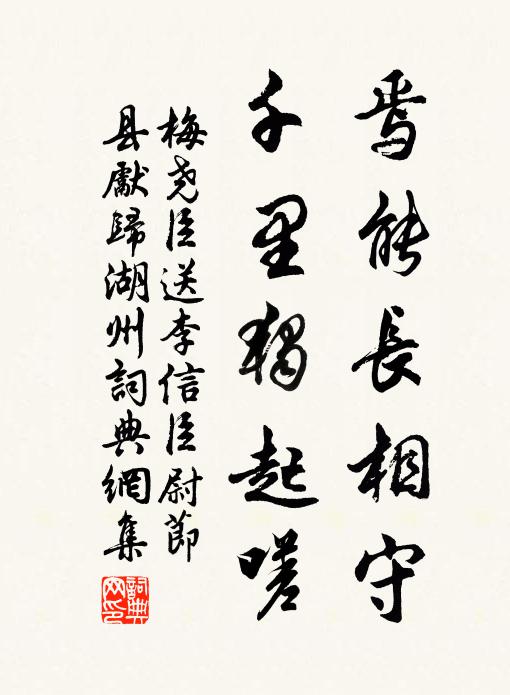 焉能長相守
千里獨起嗟
梅尧臣送李信臣尉節
县獻歸湖州詞典網集
詞典
网印